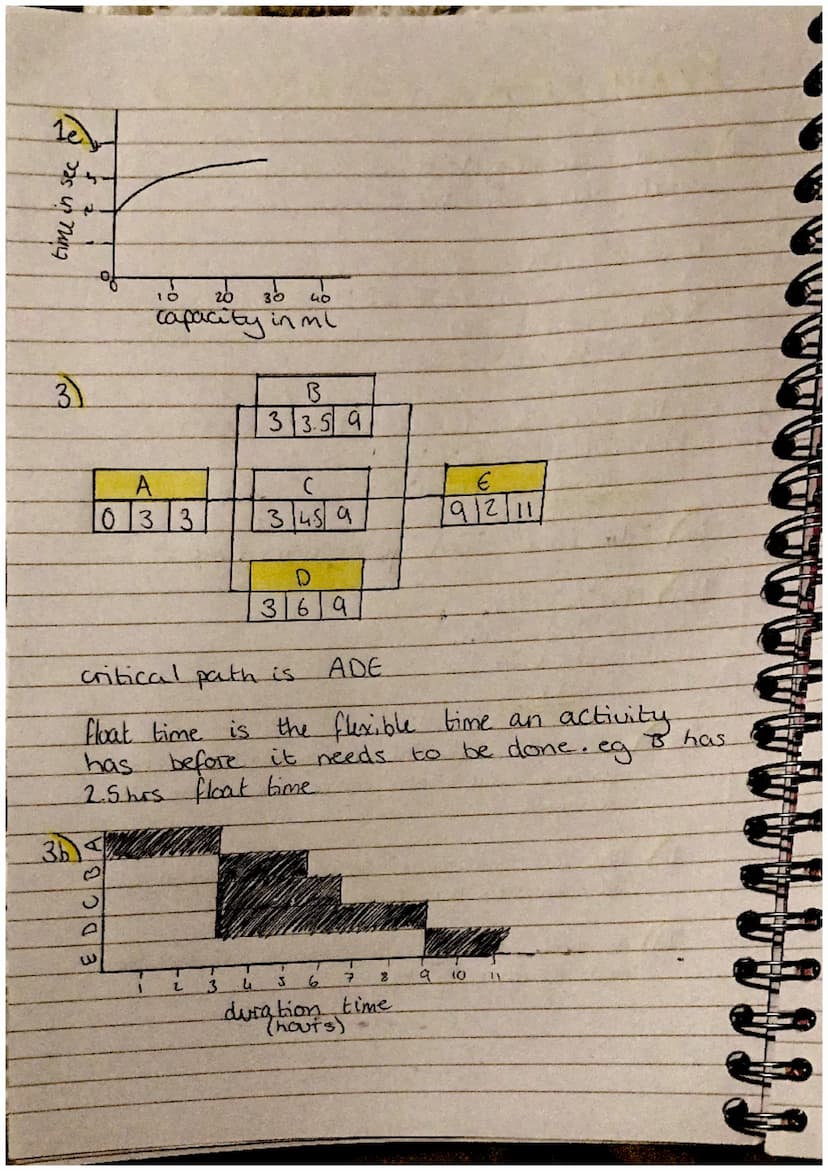 1e)
time in sec
5
2
1
0
0 10 20 30 40
capacity in ml
3)
B
3 3.5 9
A C E
0 3 3 3 4.5 9 9 2 11
D
3 6 9
critical path is ADE
float time is the flexible time an activity
has before it needs to be done. eg B has
2.5hrs float time
3b)
A
B
C
D
E
1 2 3 4 5 6 7 8 9 10 11
duration time
(hours)